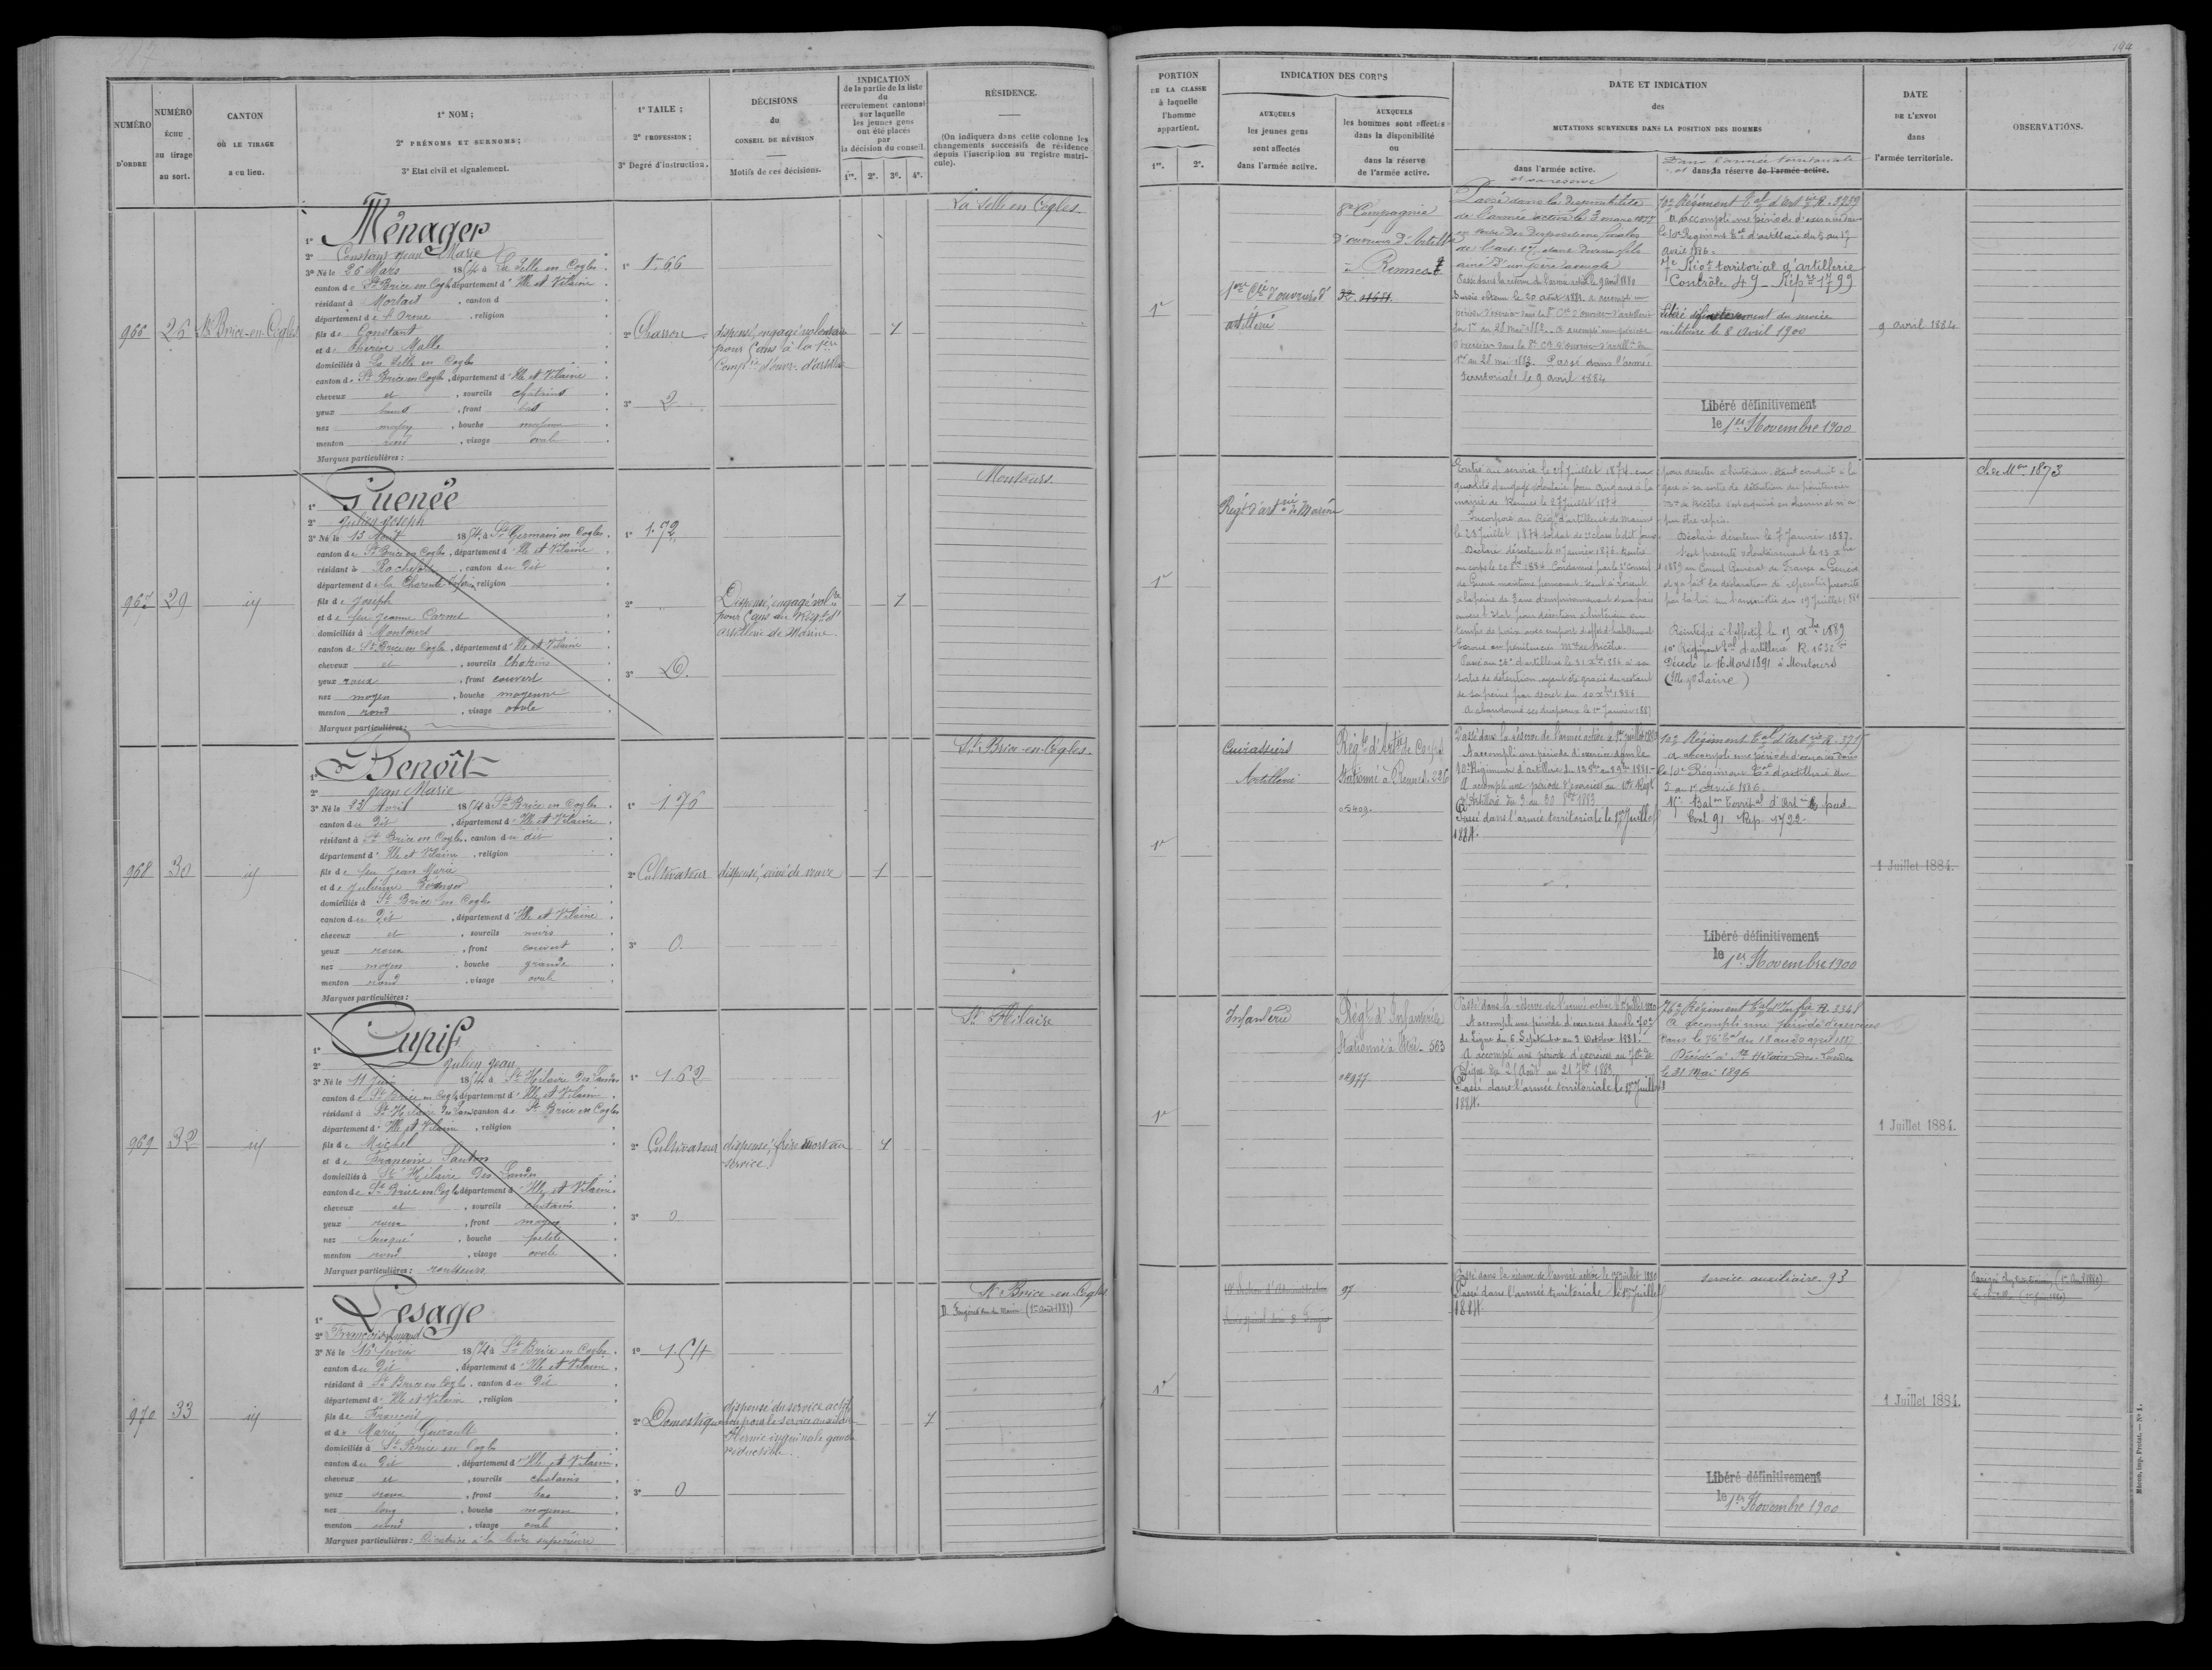 NUMÉRO
D'ORDRE
NUMÉRO
ÉCHU
au tirage
au sort.
CANTON
OÙ LE TIRAGE
a eu lieu.
1° NOM ;
2° PRÉNOMS ET SURNOMS ;
3° Etat civil et signalement.
1° TAILE ;
2° PROFESSION ;
3° Degré d'instruction.
DÉCISIONS
du
CONSEIL DE RÉVISION
Motifs de ces décisions.
INDICATION
de la partie de la liste
du
recrutement cantonal
sur laquelle
les jeunes gens
ont été placés
par
la décision du conseil.
1re. 2e. 3e. 4e.
RÉSIDENCE.
(On indiquera dans cette colonne les
changements successifs de résidence
depuis l'inscription au registre matri-
cule).
966
26
St Brice-en-Cogles
1° Ménager
2° Constant Jean Marie
3° Né le 26 Mars 1854 à La Selle en Cogles.
canton de St Brice en Cogles, département d'Ille et Vilaine
résidant à Mortain, canton d
département de l'Orne, religion
fils de Constant
et de Thérèse Malle
domiciliés à La Selle en Cogles
canton de St Brice en Cogles, département d'Ille et Vilaine
cheveux et, sourcils châtains
yeux, front bas
nez moyen, bouche moyenne
menton rond, visage ovale
Marques particulières :
1° 1.66
2° Charron
3° 2
dispensé, engagé volontaire
pour 5 ans à la 1ère
Compie d'ouvr. d'artillie
1
La Selle en Cogles
967
29
id
1° Guenée
2° Julien Joseph
3° Né le 13 Août 1854, à St Germain en Cogles.
canton de St Brice en Cogles, département d'Ille et Vilaine
résidant à Rochefort, canton du dit
département de la Charente Inférre, religion
fils de Joseph
et de feu Jeanne
domiciliés à Montours
canton de St Brice en Cogles, département d'Ille et Vilaine
cheveux et, sourcils Chatains
yeux roux, front couvert
nez moyen, bouche moyenne
menton rond, visage ovale
Marques particulières :
1° 1.72
2°
3° D.
Dispensé, engagé volre
pour 5 ans au Régt d'
artillerie de Marine.
1
Montours
968
30
id
1° Benoît
2° Jean Marie
3° Né le 23 Avril 1854 à St Brice en Cogles.
canton du Dit, département d'Ille et Vilaine
résidant à St Brice en Cogles, canton du dit
département d'Ille et Vilaine, religion
fils de feu Jean Marie
et de Julienne
domiciliés à St Brice en Cogles
canton du Dit, département d'Ille et Vilaine
cheveux et, sourcils noirs
yeux roux, front couvert
nez moyen, bouche grande
menton rond, visage ovale
Marques particulières :
1° 1.76
2° Cultivateur
3° 0.
dispensé, aîné de veuve
1
St Brice-en-Cogles.
969
32
id
1° Cupif
2° Julien Jean
3° Né le 11 Juin 1854 à St Hilaire des Landes
canton de St Brice en Cogles, département d'Ille et Vilaine
résidant à St Hilaire des Landes, canton de St Brice en Cogles
département d'Ille et Vilaine, religion
fils de Michel
et de Françoise
domiciliés à St Hilaire des Landes
canton de St Brice en Cogles, département d'Ille et Vilaine
cheveux et, sourcils chatains
yeux roux, front moyen
nez busqué, bouche petite
menton rond, visage ovale
Marques particulières : rousseurs
1° 1.62
2° Cultivateur
3° 0
dispensé, frère mort au
service.
1
St Hilaire
970
33
id
1° Lesage
2° François Amand
3° Né le février 1854 à St Brice en Cogles.
canton du Dit, département d'Ille et Vilaine
résidant à St Brice en Cogles, canton du Dit
département d'Ille et Vilaine, religion
fils de François
et de Marie Guerault
domiciliés à St Brice en Cogles
canton du Dit, département d'Ille et Vilaine
cheveux et, sourcils chatains
yeux roux, front bas
nez long, bouche moyenne
menton rond, visage ovale
Marques particulières : Cicatrice à la lèvre supérieure
1° 1.54
2° Domestique
3° 0
dispensé du service actif
bon pour le service auxiliaire
Hernie inguinale gauche
réductible.
1
St Brice-en-Cogles
(1er Août 1881)
194
PORTION
DE LA CLASSE
à laquelle
l'homme
appartient.
1re. 2e.
INDICATION DES CORPS
AUXQUELS
les jeunes gens
sont affectés
dans l'armée active.
AUXQUELS
les hommes sont affectés
dans la disponibilité
ou
dans la réserve
de l'armée active.
DATE ET INDICATION
des
MUTATIONS SURVENUES DANS LA POSITION DES HOMMES
dans l'armée active.
et sa réserve
Dans l'armée territoriale
et dans sa réserve de l'armée active.
DATE
DE L'ENVOI
dans
l'armée territoriale.
OBSERVATIONS.
1re
1ère Cie d'ouvriers d'
artillerie
8e Compagnie
d'ouvriers d'Artillie
à Rennes
Passé dans la disponibilité
de l'armée active le 3 mars 1877
en vertu des dispositions finales
de l'art. 17 étant devenu fils
aîné d'un père aveugle
Passé dans la réserve de l'armée active le 9 avril 1880
Sursis obtenu le 20 août 1881. A accompli une
période d'exercices dans la 8e Cie d'ouvriers d'artillerie
du 1er au 28 mai 1882. A accompli une période
d'exercices dans la 8e Cie d'ouvriers d'artillie du
1er au 28 mai 1883. Passé dans l'armée
territoriale le 9 avril 1884
10e Régiment Tal d'Artrie R. 3959
a accompli une période d'exercices dans
le 10e Régiment Tal d'artillerie du 5 au 17
avril 1886.
7e Riot territorial d'artillerie
Contrôle 49 - Rép re 1799
Libéré définitivement du service
militaire le 8 Avril 1900
Libéré définitivement
le 1er Novembre 1900
9 avril 1884
1re
Régt d'artrie de Marine
Entré au service le 27 Juillet 1874 en
qualité d'engagé volontaire pour cinq ans à la
mairie de Rennes le 27 Juillet 1874
Incorporé au Régt d'artillerie de marine
le 28 Juillet 1874 soldat de 2e classe le dit jour
Déclaré déserteur le 11 Janvier 1876. Rentré
au corps le 20 8bre 1884 Condamné par le 1er Conseil
de Guerre maritime permanent séant à Lorient
à la peine de 3 ans d'emprisonnement et aux frais
envers l'Etat pour désertion à l'intérieur en
temps de paix avec emport d'effets d'habillement
Ecroué au pénitencier mre de Bicêtre.
Passé au 28e d'artillerie le 31 Xbre 1886 à sa
sortie de détention ayant été gracié du restant
de sa peine par décret du 10 Xbre 1886
A abandonné ses drapeaux le 1er Janvier 1887
pour déserter à l'intérieur, étant conduit à la
gare à sa sortie de détention du pénitencier
mre de Bicêtre s'est esquivé en chemin et n'a
pu être repris.
Déclaré déserteur le 7 Janvier 1887.
S'est présenté volontairement le 13 Xbre
1889 au Consul Général de France à Genève
et y a fait la déclaration de repentir prescrite
par la loi sur l'amnistie du 19 Juillet 1889
Réintégré à l'effectif le 15 Xbre 1889
10e Régiment Tal d'artillerie R. 1632
Décédé le 16 Mars 1891 à Montours
(Ille et Vilaine)
Cl. de Mon 1873
1re
Cuirassiers
Artillerie
Régt d'Artie de Corps
Stationné à Rennes. 296
Passé dans la réserve de l'armée active le 1er juillet 1880
A accompli une période d'exercice dans le
10e Régiment d'artillerie
A accompli une période d'exercices au 10e Régt
d'Artillerie du 3 au 30 8bre 1883
Passé dans l'armée territoriale le 1er Juillet
1884.
10e Régiment Tal d'Artrie R. 3715
a accompli une période d'exercices dans
le 10e Régiment Tal d'artillerie du
Batn Territal d'Artie à pied
Cont 91 Rép. 1722.
Libéré définitivement
le 1er Novembre 1900
1 Juillet 1884.
1re
Infanterie
Régt d'Infanterie
Stationné à Vitré. 563
18977
Passé dans la réserve de l'armée active le 1er juillet 1880
A accompli une période d'exercices dans le 70e
de Ligne du 6 Septembre au 3 Octobre 1881.
A accompli une période d'exercices au 70e de
Ligne du 25 Août au 21 7bre 1883
Passé dans l'armée territoriale le 1er Juillet
1884.
76e Régiment Tal d'Infrie R. 3348
A accompli une période d'exercices
dans le 76e Tal du 18 au 30 avril 1887
Décédé à St Hilaire-des-Landes
le 31 Mai 1896
1 Juillet 1884.
1re
97
Passé dans la réserve de l'armée active le 1er juillet 1880
Passé dans l'armée territoriale le 1er Juillet
1884
service auxiliaire. 93
Libéré définitivement
le 1er Novembre 1900
1 Juillet 1884.
Mâcon, imp. Protat. — N° 1.